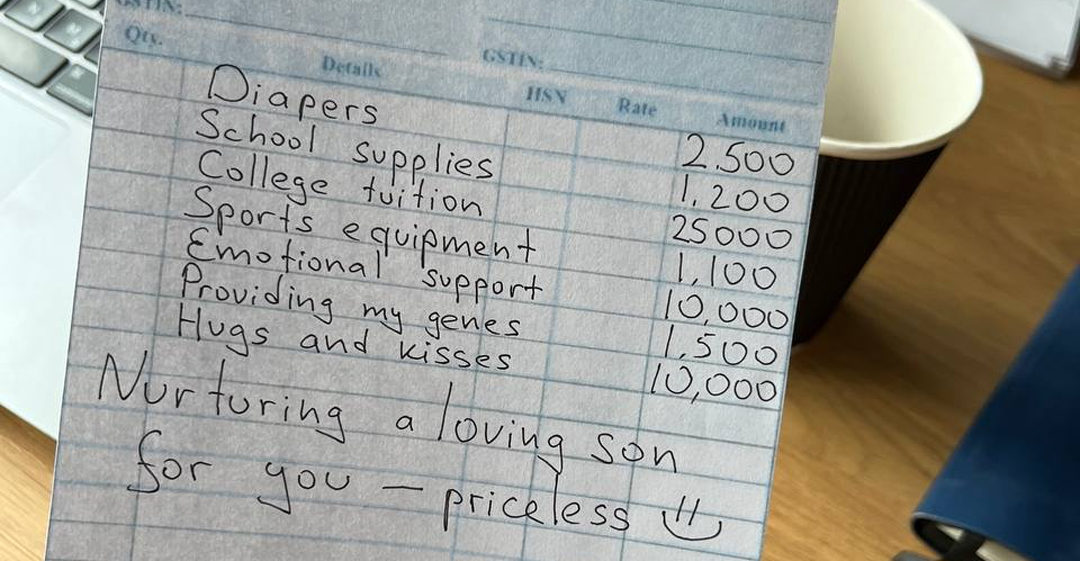 GSTIN:
Qty. Details GSTIN: HSN Rate Amount
Diapers 2.500
School supplies 1,200
College tuition 25000
Sports equipment 1,100
Emotional support 10,000
Providing my genes 1,500
Hugs and kisses 10,000
Nurturing a loving son
for you – priceless